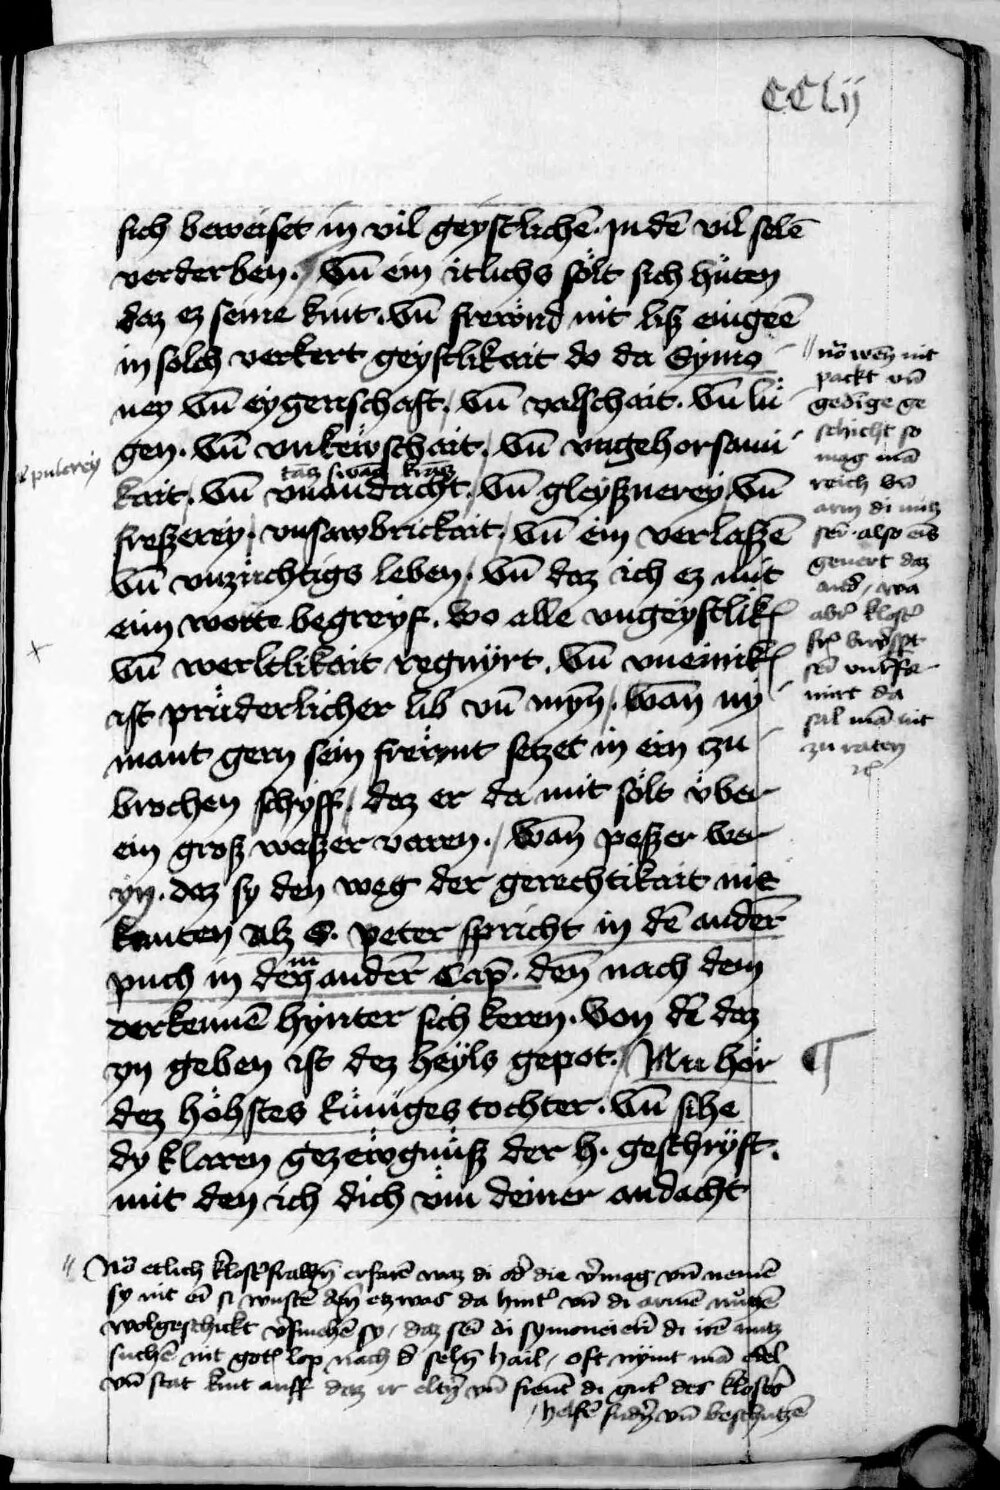 CCLij
sich beweiset in vil geystlichē. Jn dē vil selē
verderben. vn̄ ein itlichs sölt sich hüten
daz ez seine kint. vn̄ frewnd nit lisz eingeē
in solch verkert geystlikait do da Symo
ney vn̄ eygenschaft, vn̄ valschait. vn̄ lü
gen. vn̄ vnkewschait, vn̄ vngehorsami
kait, vn̄ vnandacht, vn̄ gleyßnerey, vn̄
freßerey, vnsawbrickait, vn̄ ein verlaßē
vn̄ vnzüchtigs leben, vn̄ daz ich ez mit
eim worte begreyf. wo alle vngeystlik
vn̄ werltlikait regnÿrt. vn̄ vneinik
ist prüderlicher lib vn̄ myn̄, wan̄ ny
mant gern sein frewnt setzet in ein zu
brochen schyff, daz er da mit sölt vber
ein groß waßer varen, wan̄ peßer wer
yn. daz sy den weg der gerechtikait nit
kanten Alz S. peter spricht in dē anderr̄
puch in dem anderr̄ Cap̄. den̄ nach dem
derkennē hynter sich keren. Von dē daz
yn geben ist dez heyls gepot. Nu hör
dez höhstes küniges tochter. vn̄ sihe
dy klaren gezewgnüß der h. geschryft.
mit den ich dich vm̄ deiner andacht
pulerey
tācz kräcz
nō wen̄ nit
packt vn̄
gedīge ge
schicht so
mag mā
reich vn̄
arm di nütz
sēi. also eīs
genert daz
and, wa
abꝰ klostꝰ
da
sal mā nit
zu raten
Nō etlich klostꝰfrawen̄ erfarē waz di odꝰ die vꝰmag vn̄ nemē
sy nit eī si wustē den̄ etzwas da hintꝰ vn̄ di armē nützē
wolgeschickt vꝰsmehē sy, daz sēi di symoneierī di irē nutz
suchē nit gotꝭ lop nach dꝰ selen̄ hail, oft nymt mā edel
vn̄ stat kint auff daz ir eltꝰn̄ vn̄ freūt di gutꝰ des klostꝰs
helfē vn̄ beschutzē